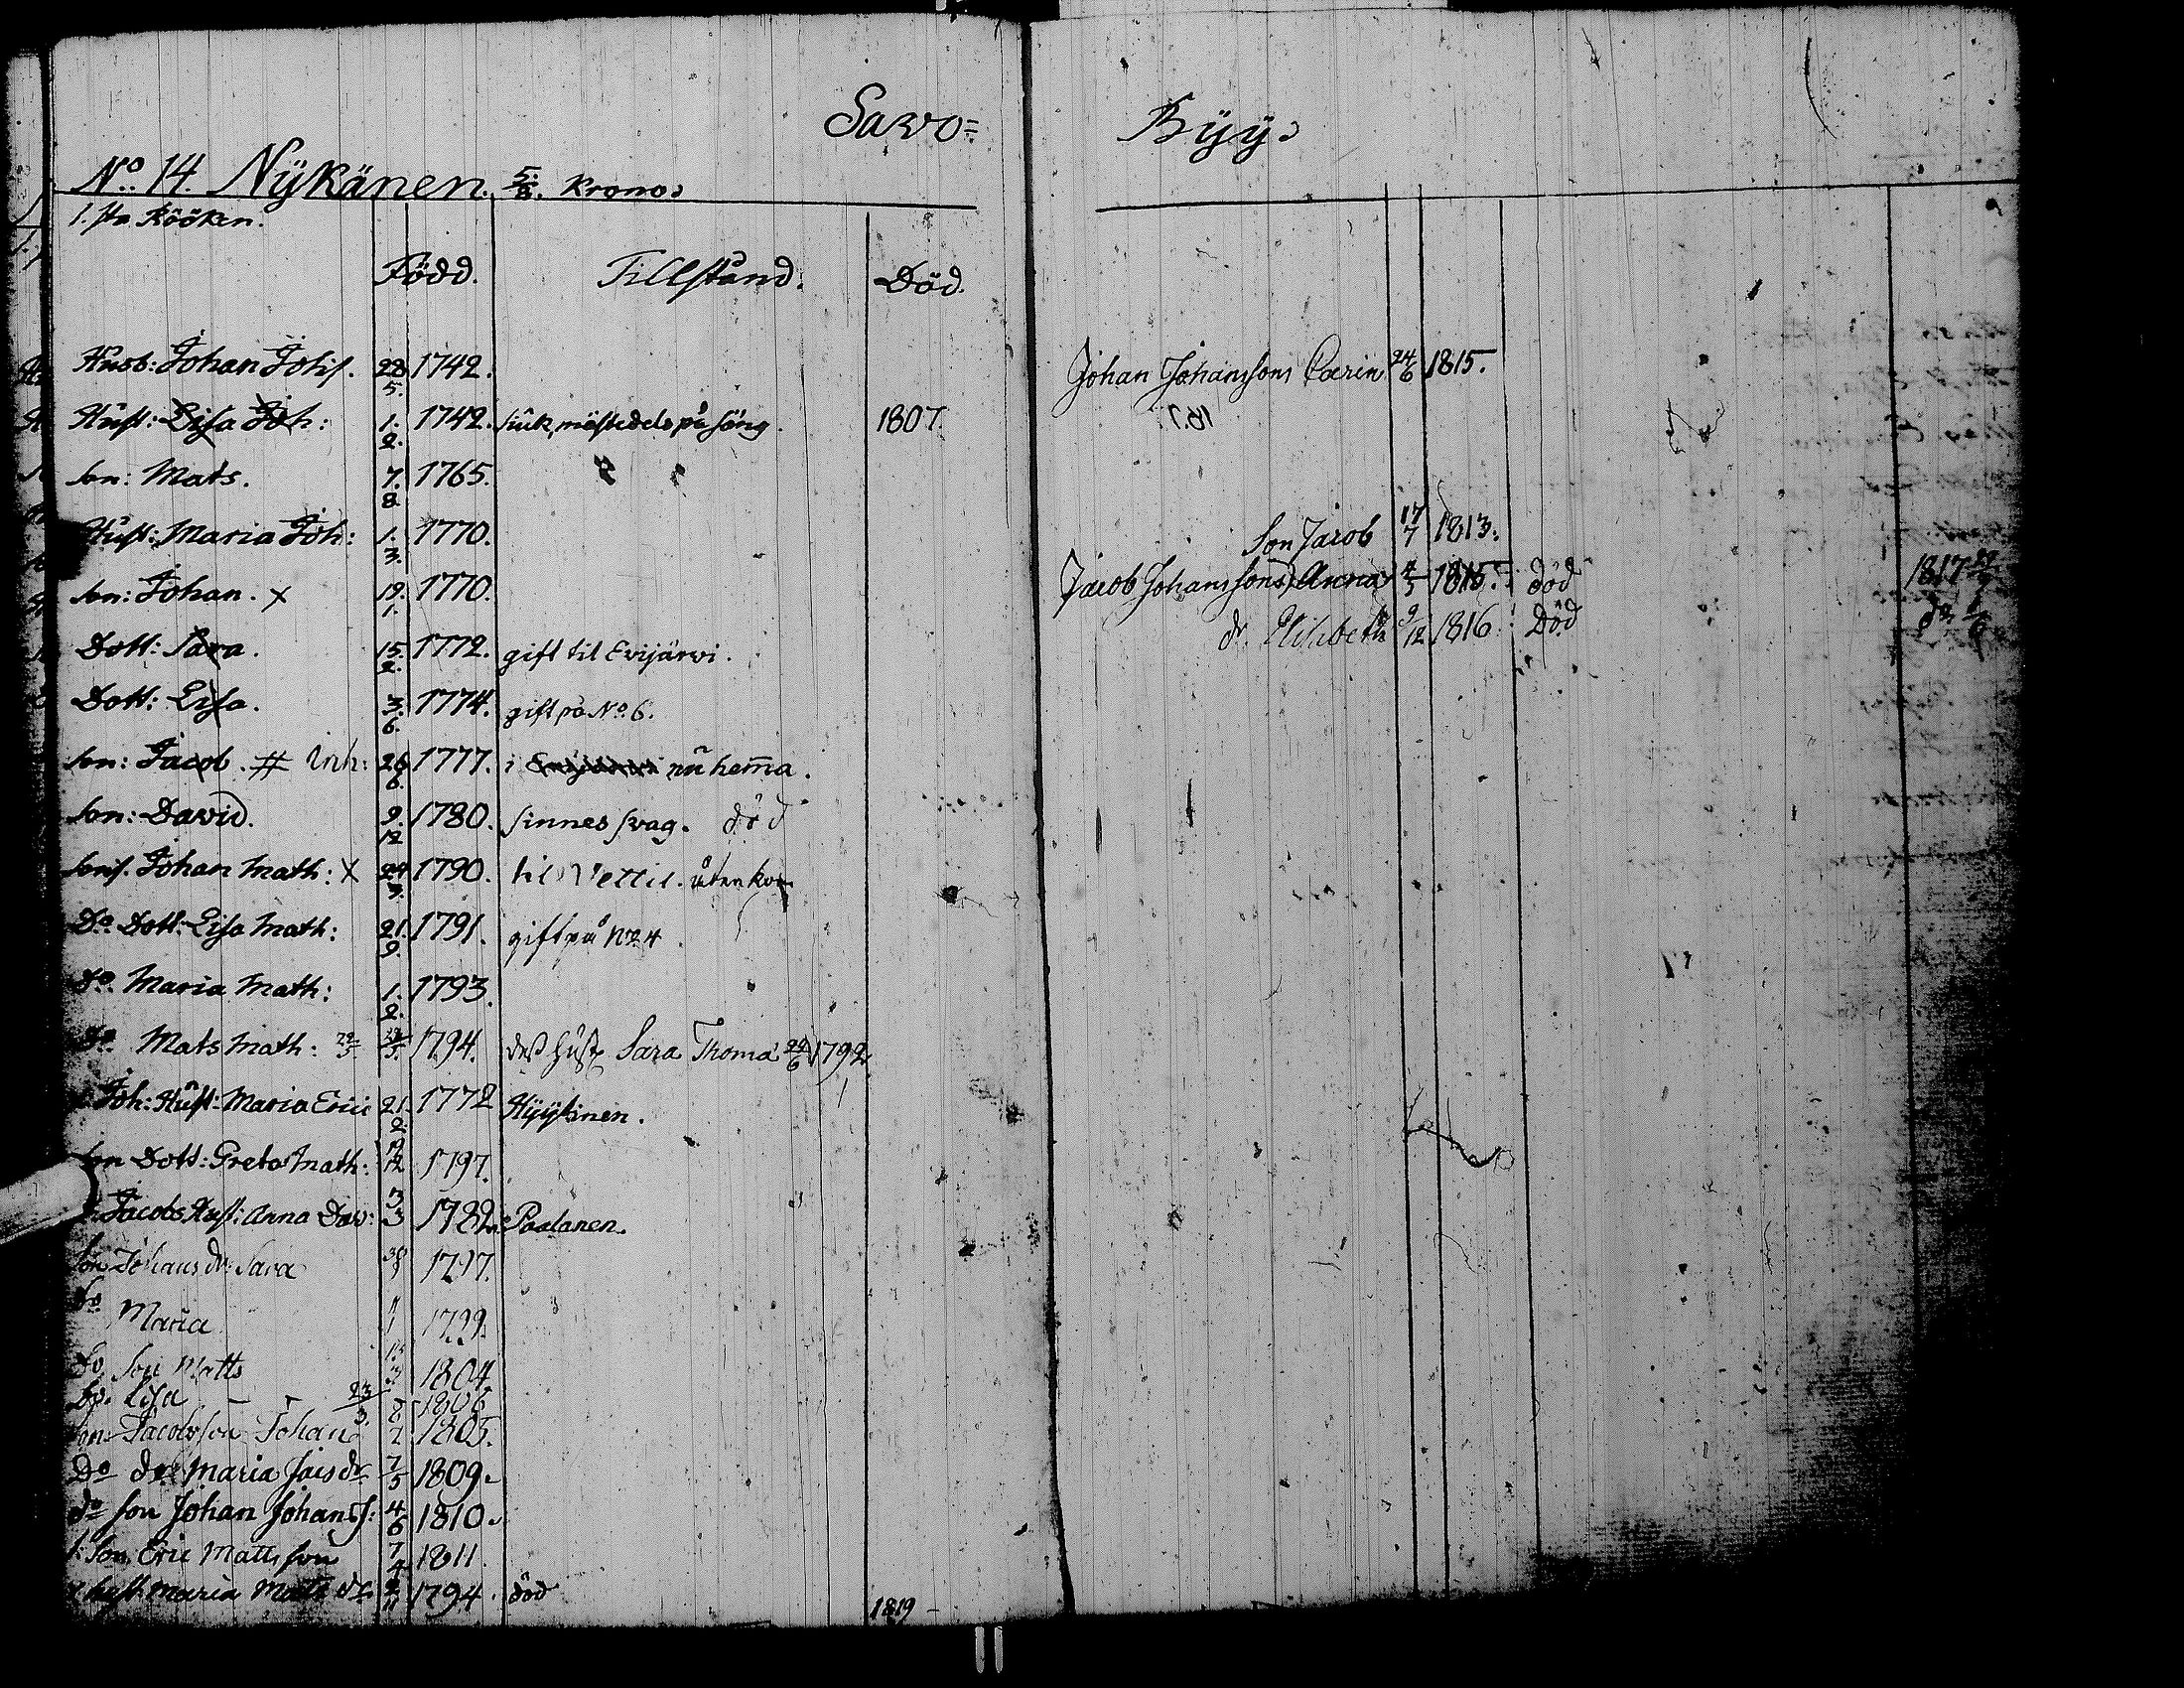 Savo=
No. 14. Nÿkänen. 5/8. Krono.
1. sta Rööken.
Född. Tillstånd. Död.
Husb: Johan Johs. 28/5. 1742.
Hust: Lisa Joh: 1./2. 1742. siuk, mästedels på säng. 1807.
Son: Mats. 7./8. 1765.
Hust: Maria Joh: 1./3. 1770.
Son: Johan. x 19./1. 1770.
Dott: Sara. 15./2. 1772. gift til Evijärvi.
Dott: Lisa. 3./6. 1774. gift på No. 6.
Son: Jacob. # Inh: 26/6. 1777. i nu hemma.
Son: David. 9./12 1780. sinnes svag. död
Sons. Johan Math: x 24/3. 1790. til Vettil. utan
Do. Dott: Lisa Math: 21./9. 1791. gift på No 4
Do. Maria Math: 1./2. 1793.
Do. Mats Math: 1794. dess hust Sara Thomæ 24/6 1792.
Joh: Hust: Maria Erici 21./2. 1772 Hyytinen.
Son Dott: Greta Math: 12 1797.
Jacobs Hust: Anna Dav: 3/3 1782. Paalanen.
Son Johans dr. Sara 1797.
Do Maria 11/1 1799.
Do. Son Matts 3 1804.
Do. Lisa 23/3. 1806
Son Jacobsson Johan 1805.
Do dr Maria Jacsdr 7/5 1809.
do son Johan Johans: 4/6 1810.
Son Eric Matts son 7/4 1811.
hust. Maria Matts dr 2/11 1794. död 1819
Byy.
Johan Johanssons Carin 24/6 1815.
Son Jacob 17/7 1813.
Jacob Johanssons Anna 4/5 1815. död 1817
dr. Elisabeth 9/12 1816. Död